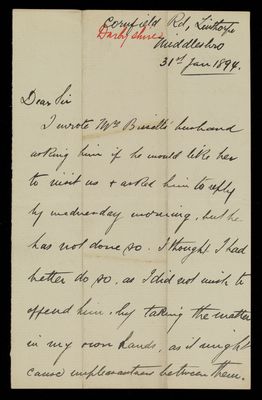 Cornfield Rd, Linthorpe
Darbyshire
Middlesbro
31st Jan 1894.
Dear Sir
I wrote Mrs husband
asking him if he would like her
to visit us & asked him to reply
by wednesday morning, but he
has not done so. I thought I had
better do so, as I did not wish to
offend him, by taking the matter
in my own hands, as it might
cause unpleasantness between them.